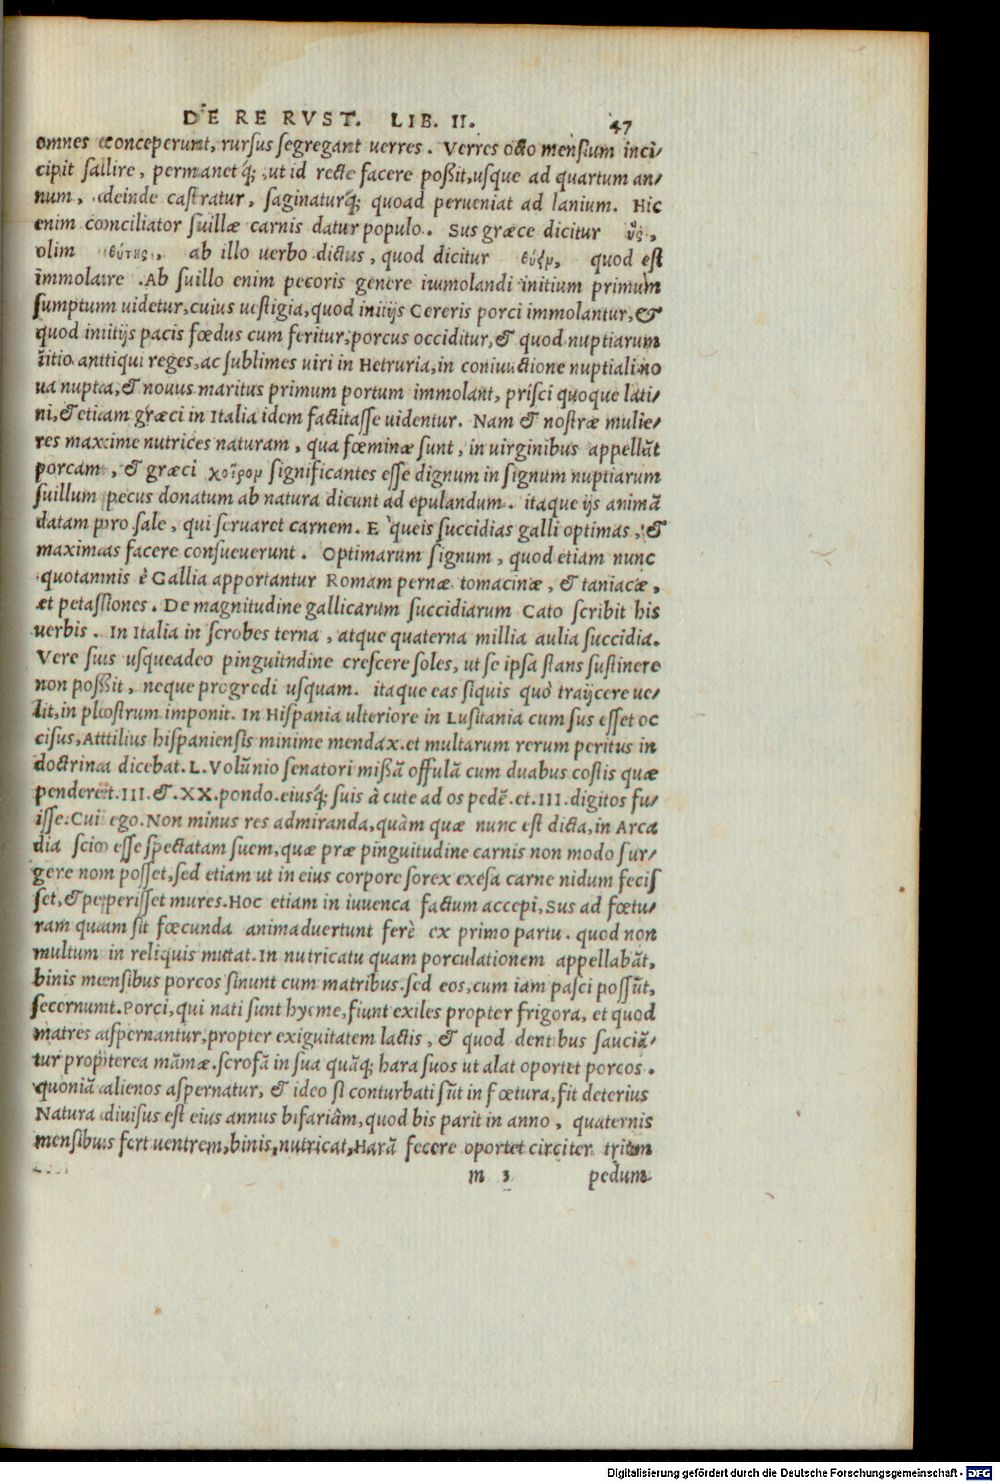 DE RE RVST. LIB. II. 47
omnes conceperunt, rursus segregant uerres. Verres octo mensium inci-
cipit salire, permanetq́; ut id recte facere poßit, usque ad quartum an-
num, deinde castratur, saginaturq́; quoad perueniat ad lanium. Hic
enim conciliator suillæ carnis datur populo. Sus græce dicitur ὗς,
olim θύτης, ab illo uerbo dictus, quod dicitur θύειν, quod est
immolare. Ab suillo enim pecoris genere immolandi initium primùm
sumptum uidetur, cuius uestigia, quod initijs Cereris porci immolantur, &
quod initijs pacis fœdus cum feritur, porcus occiditur, & quod nuptiarum
initio antiqui reges, ac sublimes uiri in Hetruria, in coniunctione nuptiali no
ua nupta, & nouus maritus primum portum immolant, prisci quoque lati-
ni, & etiam græci in Italia idem factitasse uidentur. Nam & nostræ mulie-
res maxime nutrices naturam, qua fœminæ sunt, in uirginibus appellãt
porcam, & græci χοῖρον significantes esse dignum in signum nuptiarum
suillum pecus donatum ab natura dicunt ad epulandum. itaque ijs animã
datam pro sale, qui seruaret carnem. E queis succidias galli optimas, &
maximas facere consueuerunt. Optimarum signum, quod etiam nunc
quotannis è Gallia apportantur Romam pernæ tomacinæ, & taniacæ,
et petasiones. De magnitudine gallicarum succidiarum Cato scribit his
uerbis. In Italia in scrobes terna, atque quaterna millia aulia succidia.
Vere suis usqueadeo pinguitndine crescere soles, ut se ipsa stans sustinere
non poßit, neque progredi usquam. itaque eas siquis quò traijcere ue-
lit, in plostrum imponit. In Hispania ulteriore in Lusitania cum sus esset oc
cisus, Attilius hispaniensis minime mendax. et multarum rerum peritus in
doctrina dicebat. L. Volũnio senatori mißã offulã cum duabus costis quæ
penderet. III. &. XX. pondo. eiusq́; suis à cute ad os pedẽ. et. III. digitos fu-
isse. Cui ego. Non minus res admiranda, quàm quæ nunc est dicta, in Arca
dia scio esse spectatam suem, quæ præ pinguitudine carnis non modo sur-
gere nom posset, sed etiam ut in eius corpore sorex exesa carne nidum fecis
set, & peperisset mures. Hoc etiam in iuuenca factum accepi, Sus ad fœtu-
ram quam sit fœcunda animaduertunt ferè ex primo partu. quod non
multum in reliquis mutat. In nutricatu quam porculationem appellabãt,
binis mensibus porcos sinunt cum matribus. sed eos, cum iam pasci possũt,
secernunt. Porci, qui nati sunt hyeme, fiunt exiles propter frigora, et quod
matres aspernantur, propter exiguitatem lactis, & quod dentibus sauciã-
tur propterea mãmæ. scrofã in sua quãq; hara suos ut alat oportet porcos.
quoniã alienos aspernatur, & ideo si conturbati sũt in fœtura, fit deterius
Natura diuisus est eius annus bifariàm, quod bis parit in anno, quaternis
mensibus fert uentrem, binis, nutricat, Harã fecere oportet circiter trium
m 3 pedum
Digitalisierung gefördert durch die Deutsche Forschungsgemeinschaft - DFG